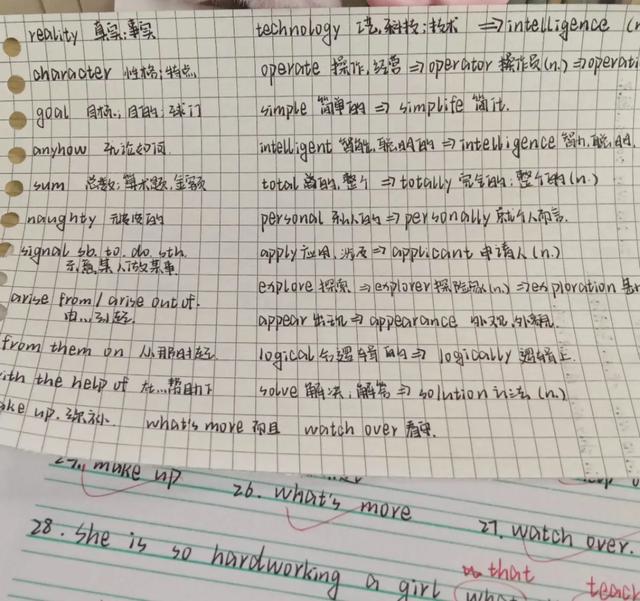 reality 真实;事实 technology 工艺,科技;技术 ⇒ intelligence
character 性格;特点 operate 操作,经营 ⇒ operator 操作员(n.) ⇒ operati
goal 目标;目的;球门 simple 简单的 ⇒ simplife 简化.
anyhow 无论如何 intelligent 智能,聪明的 ⇒ intelligence 智力,聪明.
sum 总数;算术题,金额 total 总的,整个 ⇒ totally 完全的;整个的(n.)
naughty 的 personal 私人的 ⇒ personally 就个人而言.
signal sb. to. do. sth. apply 应用, ⇒ applicant 申请人(n.)
示意某人做某事.
explore 探索 ⇒ explorer 探险家(n.) ⇒ exploration
arise from / arise out of.
由...引起 appear 出现 ⇒ appearance 外观,外貌.
from them on 从那时起 logical 合逻辑的 ⇒ logically 逻辑上
ith the help of 在...帮助下 solve 解决,解答 ⇒ solution 办法(n.)
ake up. 弥补. what's more 而且 watch over 看守.
27. make up
26. what's more
27. watch over.
28. she is so hardworking a girl that
what teach